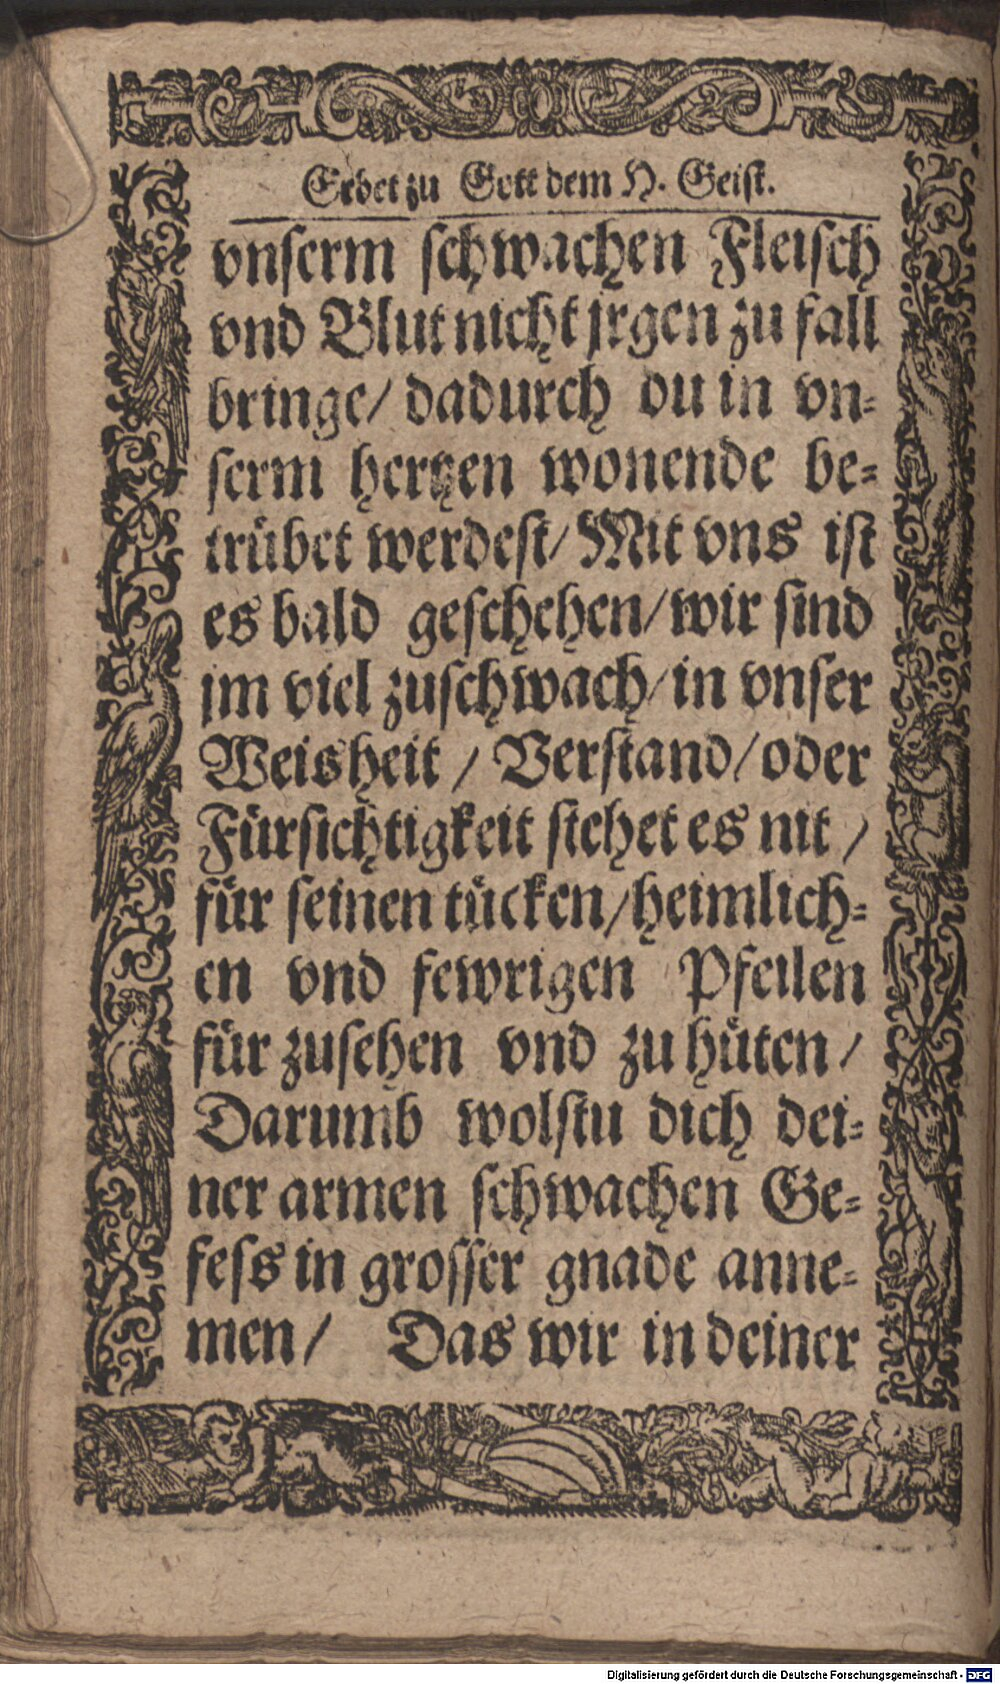 Gebet zu Gott dem H. Geist.
vnserm schwachen Fleisch
vnd Blut nicht jrgen zu fall
bringe/ dadurch du in vn-
serm hertzen wonende be-
trübet werdest/ Mit vns ist
es bald geschehen/ wir sind
jm viel zuschwach/ in vnser
Weisheit / Verstand/ oder
Fürsichtigkeit stehet es nit /
für seinen tücken/ heimlich-
en vnd fewrigen Pfeilen
für zusehen vnd zu hüten /
Darumb wolstu dich dei-
ner armen schwachen Ge-
fess in grosser gnade anne-
men/ Das wir in deiner
Digitalisierung gefördert durch die Deutsche Forschungsgemeinschaft - DFG